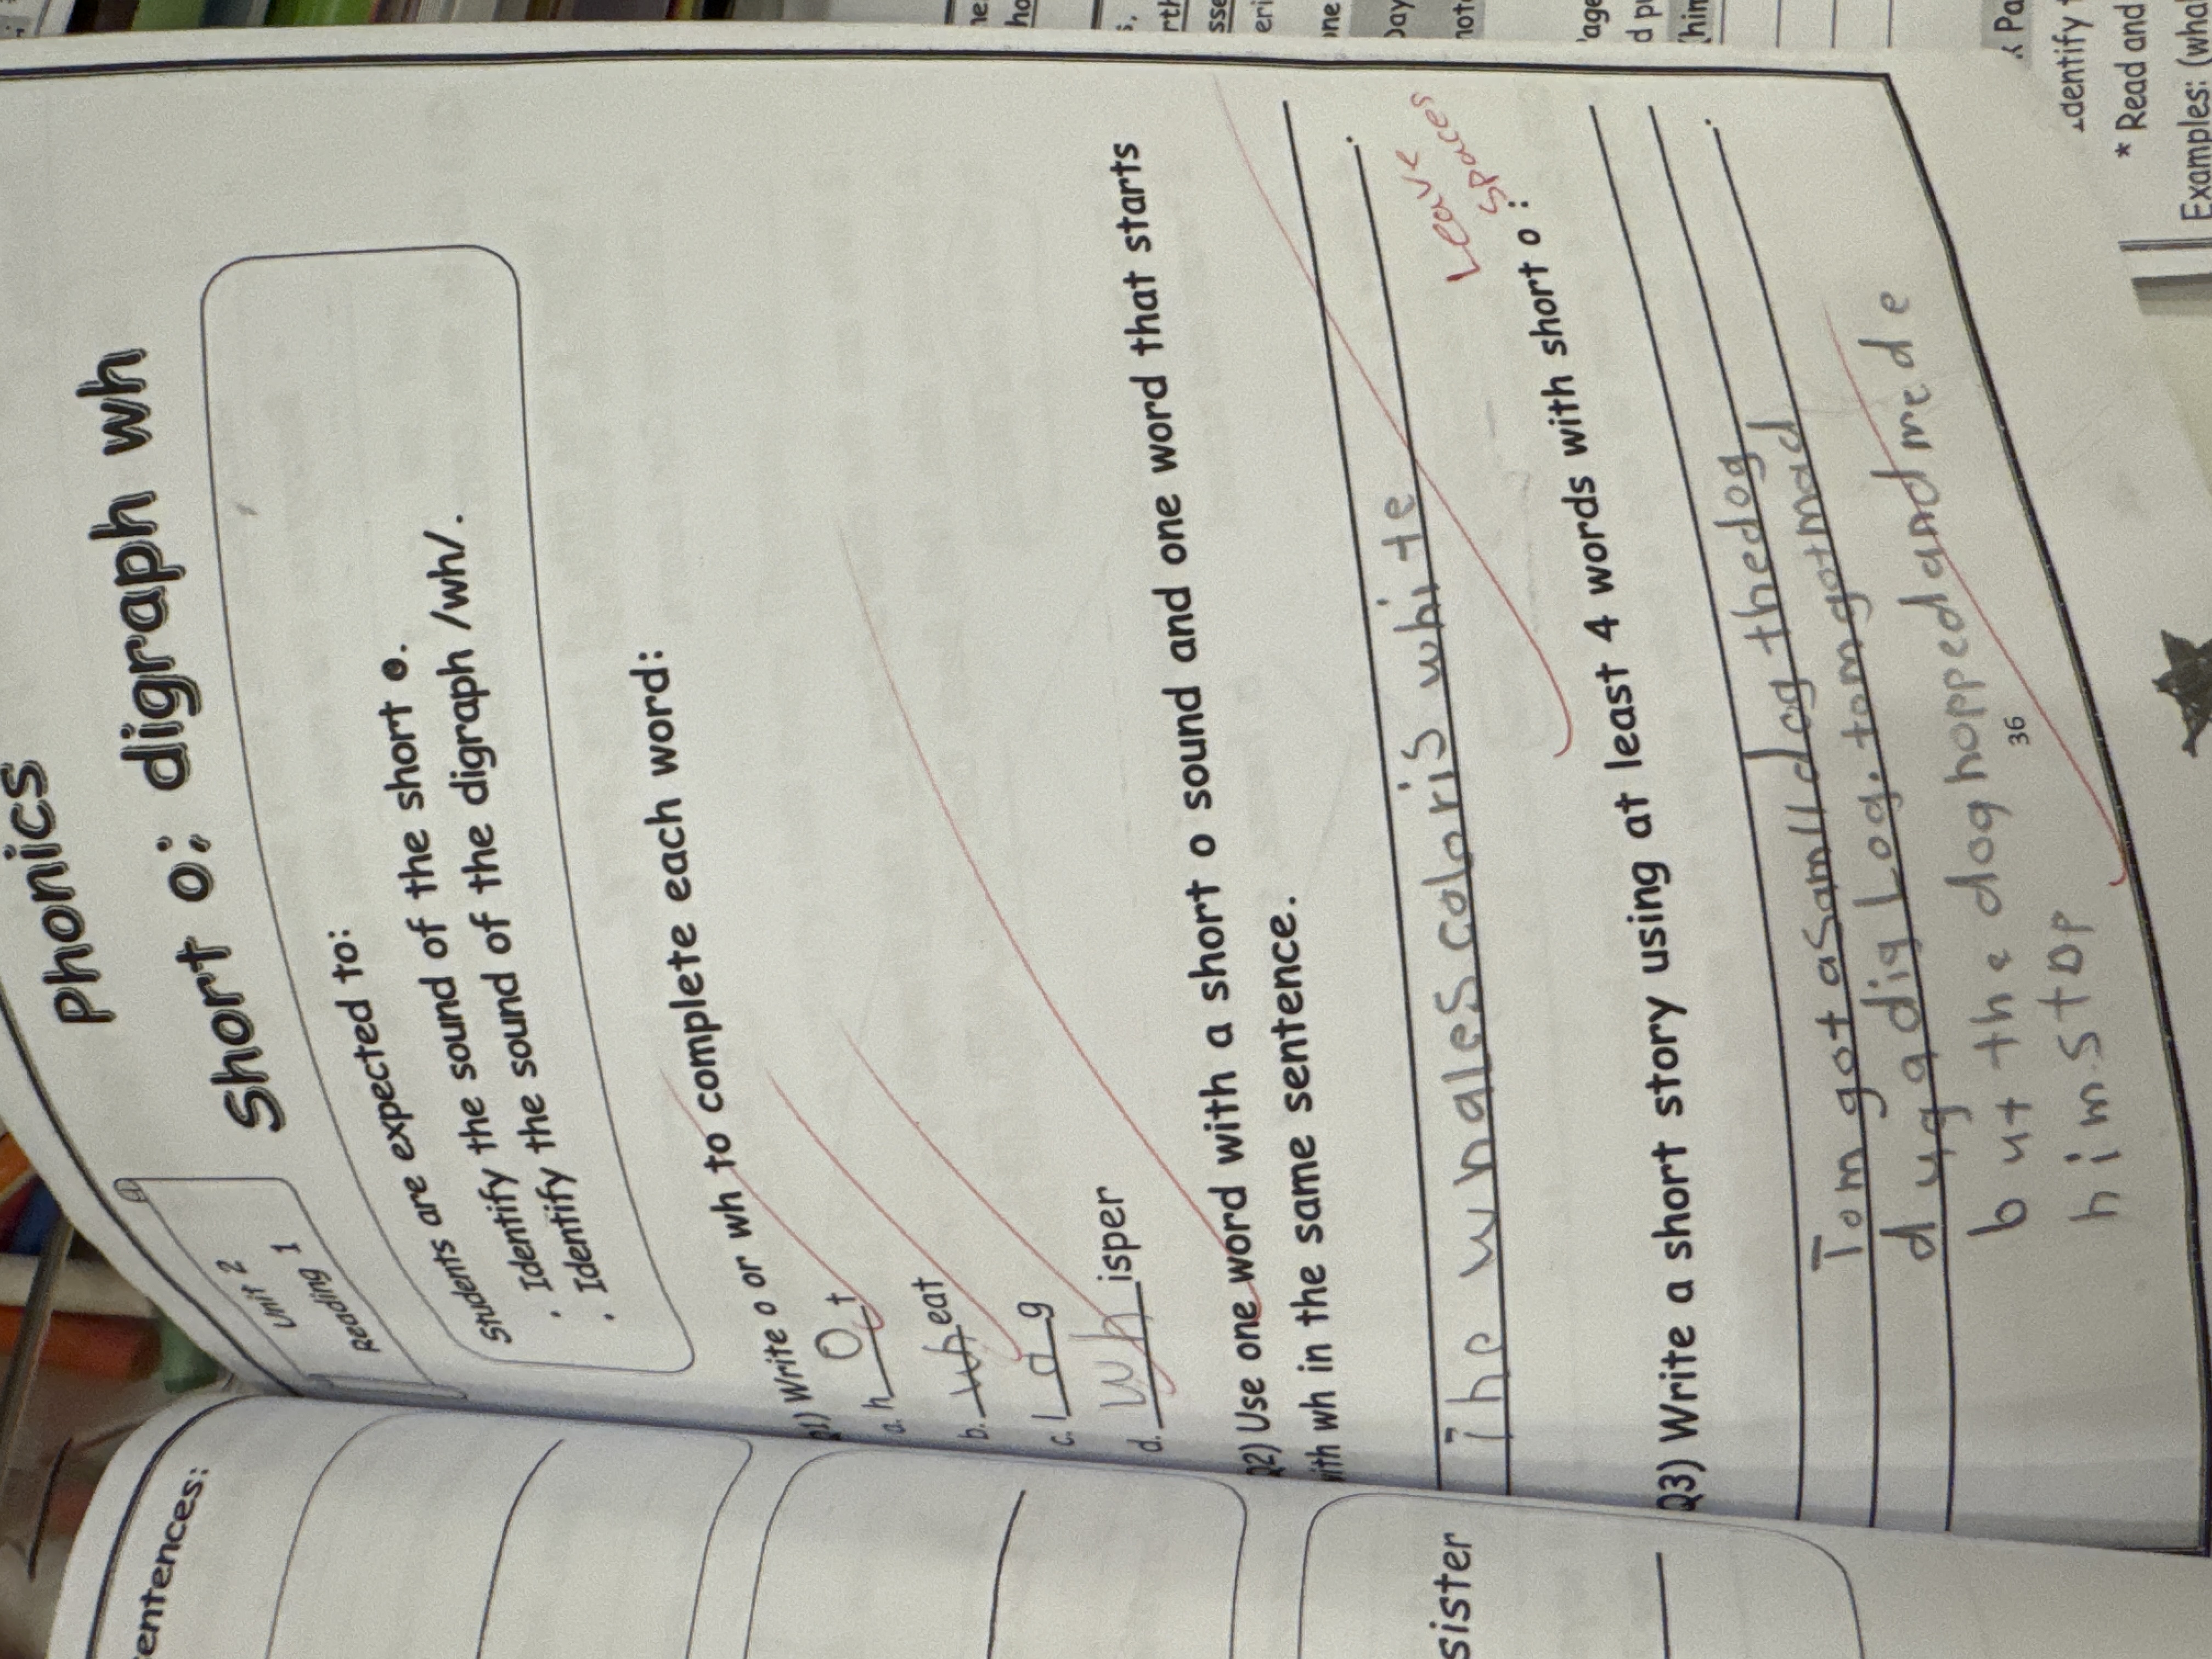 Phonics
Short o: digraph wh
Unit 2
Reading 1
Students are expected to:
· Identify the sound of the short o.
· Identify the sound of the digraph /wh/.
Q1) Write o or wh to complete each word:
a. h o t
b. wh eat
c. l o g
d. wh isper
Q2) Use one word with a short o sound and one word that starts
with wh in the same sentence.
The whales color is white .
Leave
spaces
Q3) Write a short story using at least 4 words with short o :
Tom got a samll dog the dog
dug a dig Log. tom got mad
but the dog hopped and mede
him stop
36
entences:
sister
Identify
* Read and
Examples: (wha